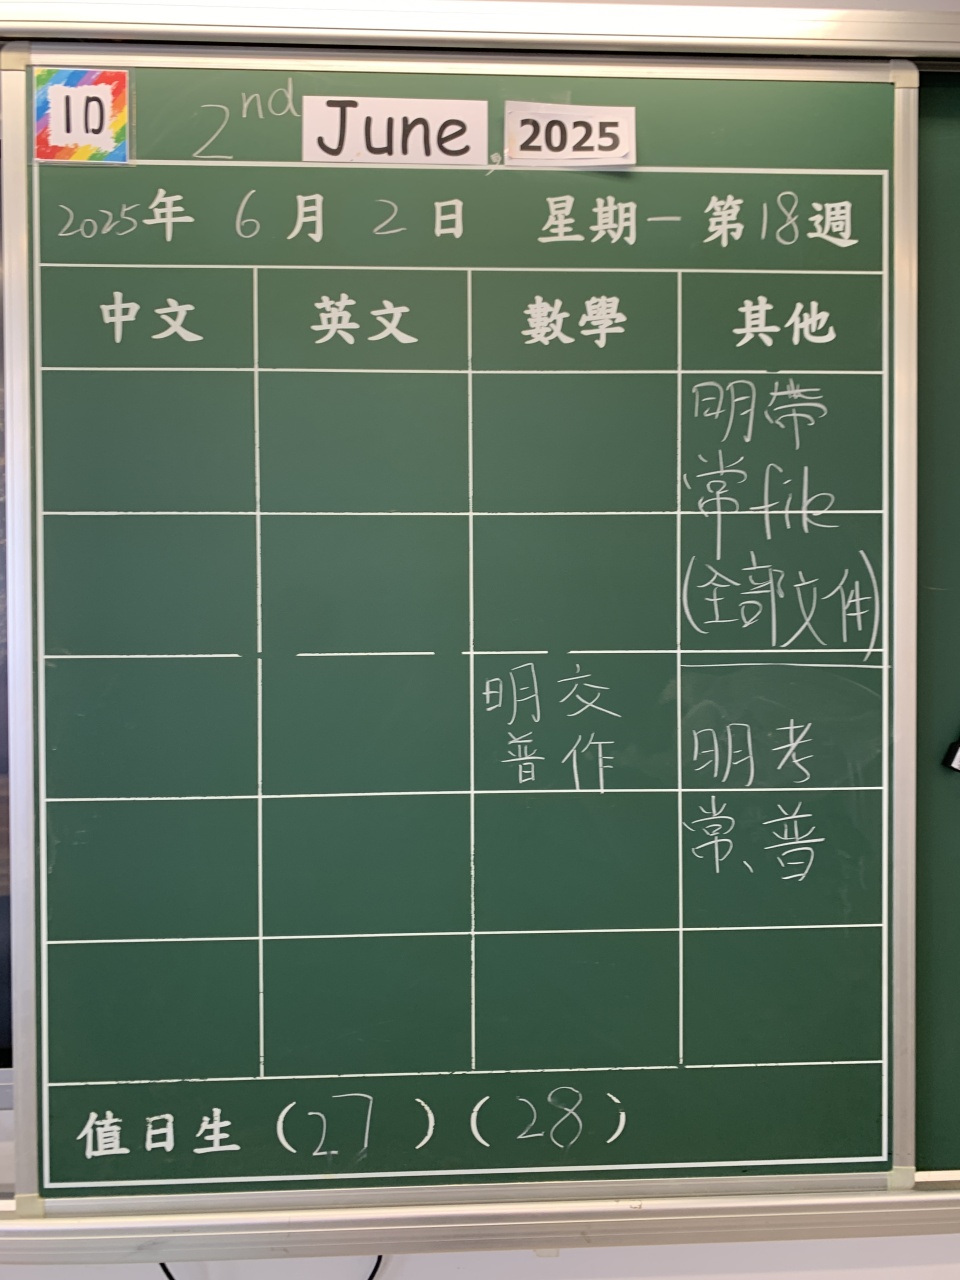 1D
2nd June, 2025
2025年 6月 2日 星期一 第18週
中文 英文 數學 其他
明帶
常file
(全部文件)
明交
普作
明考
常、普
值日生 (27) (28)